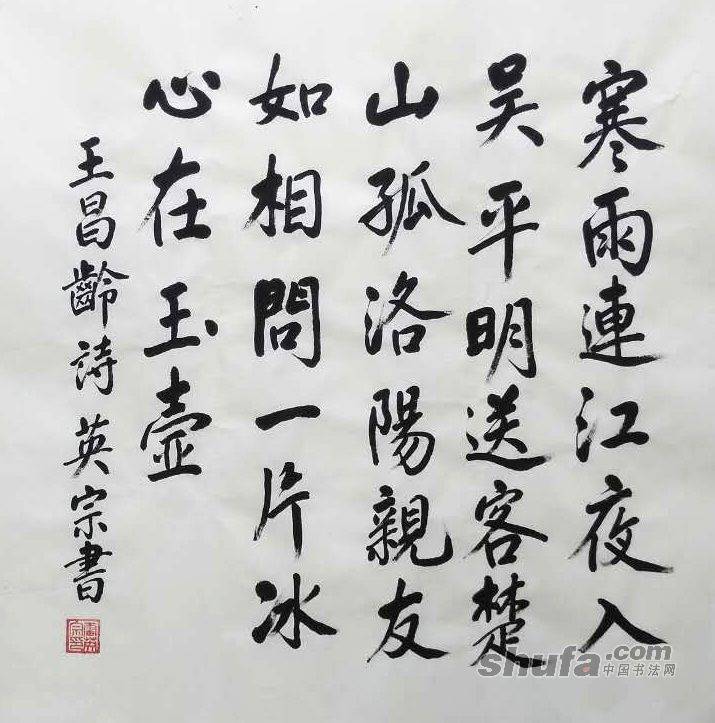 寒雨連江夜入
吴平明送客楚
山孤洛陽親友
如相問一片冰
心在玉壺
王昌齡詩 英宗書
shufa.com
中国书法网